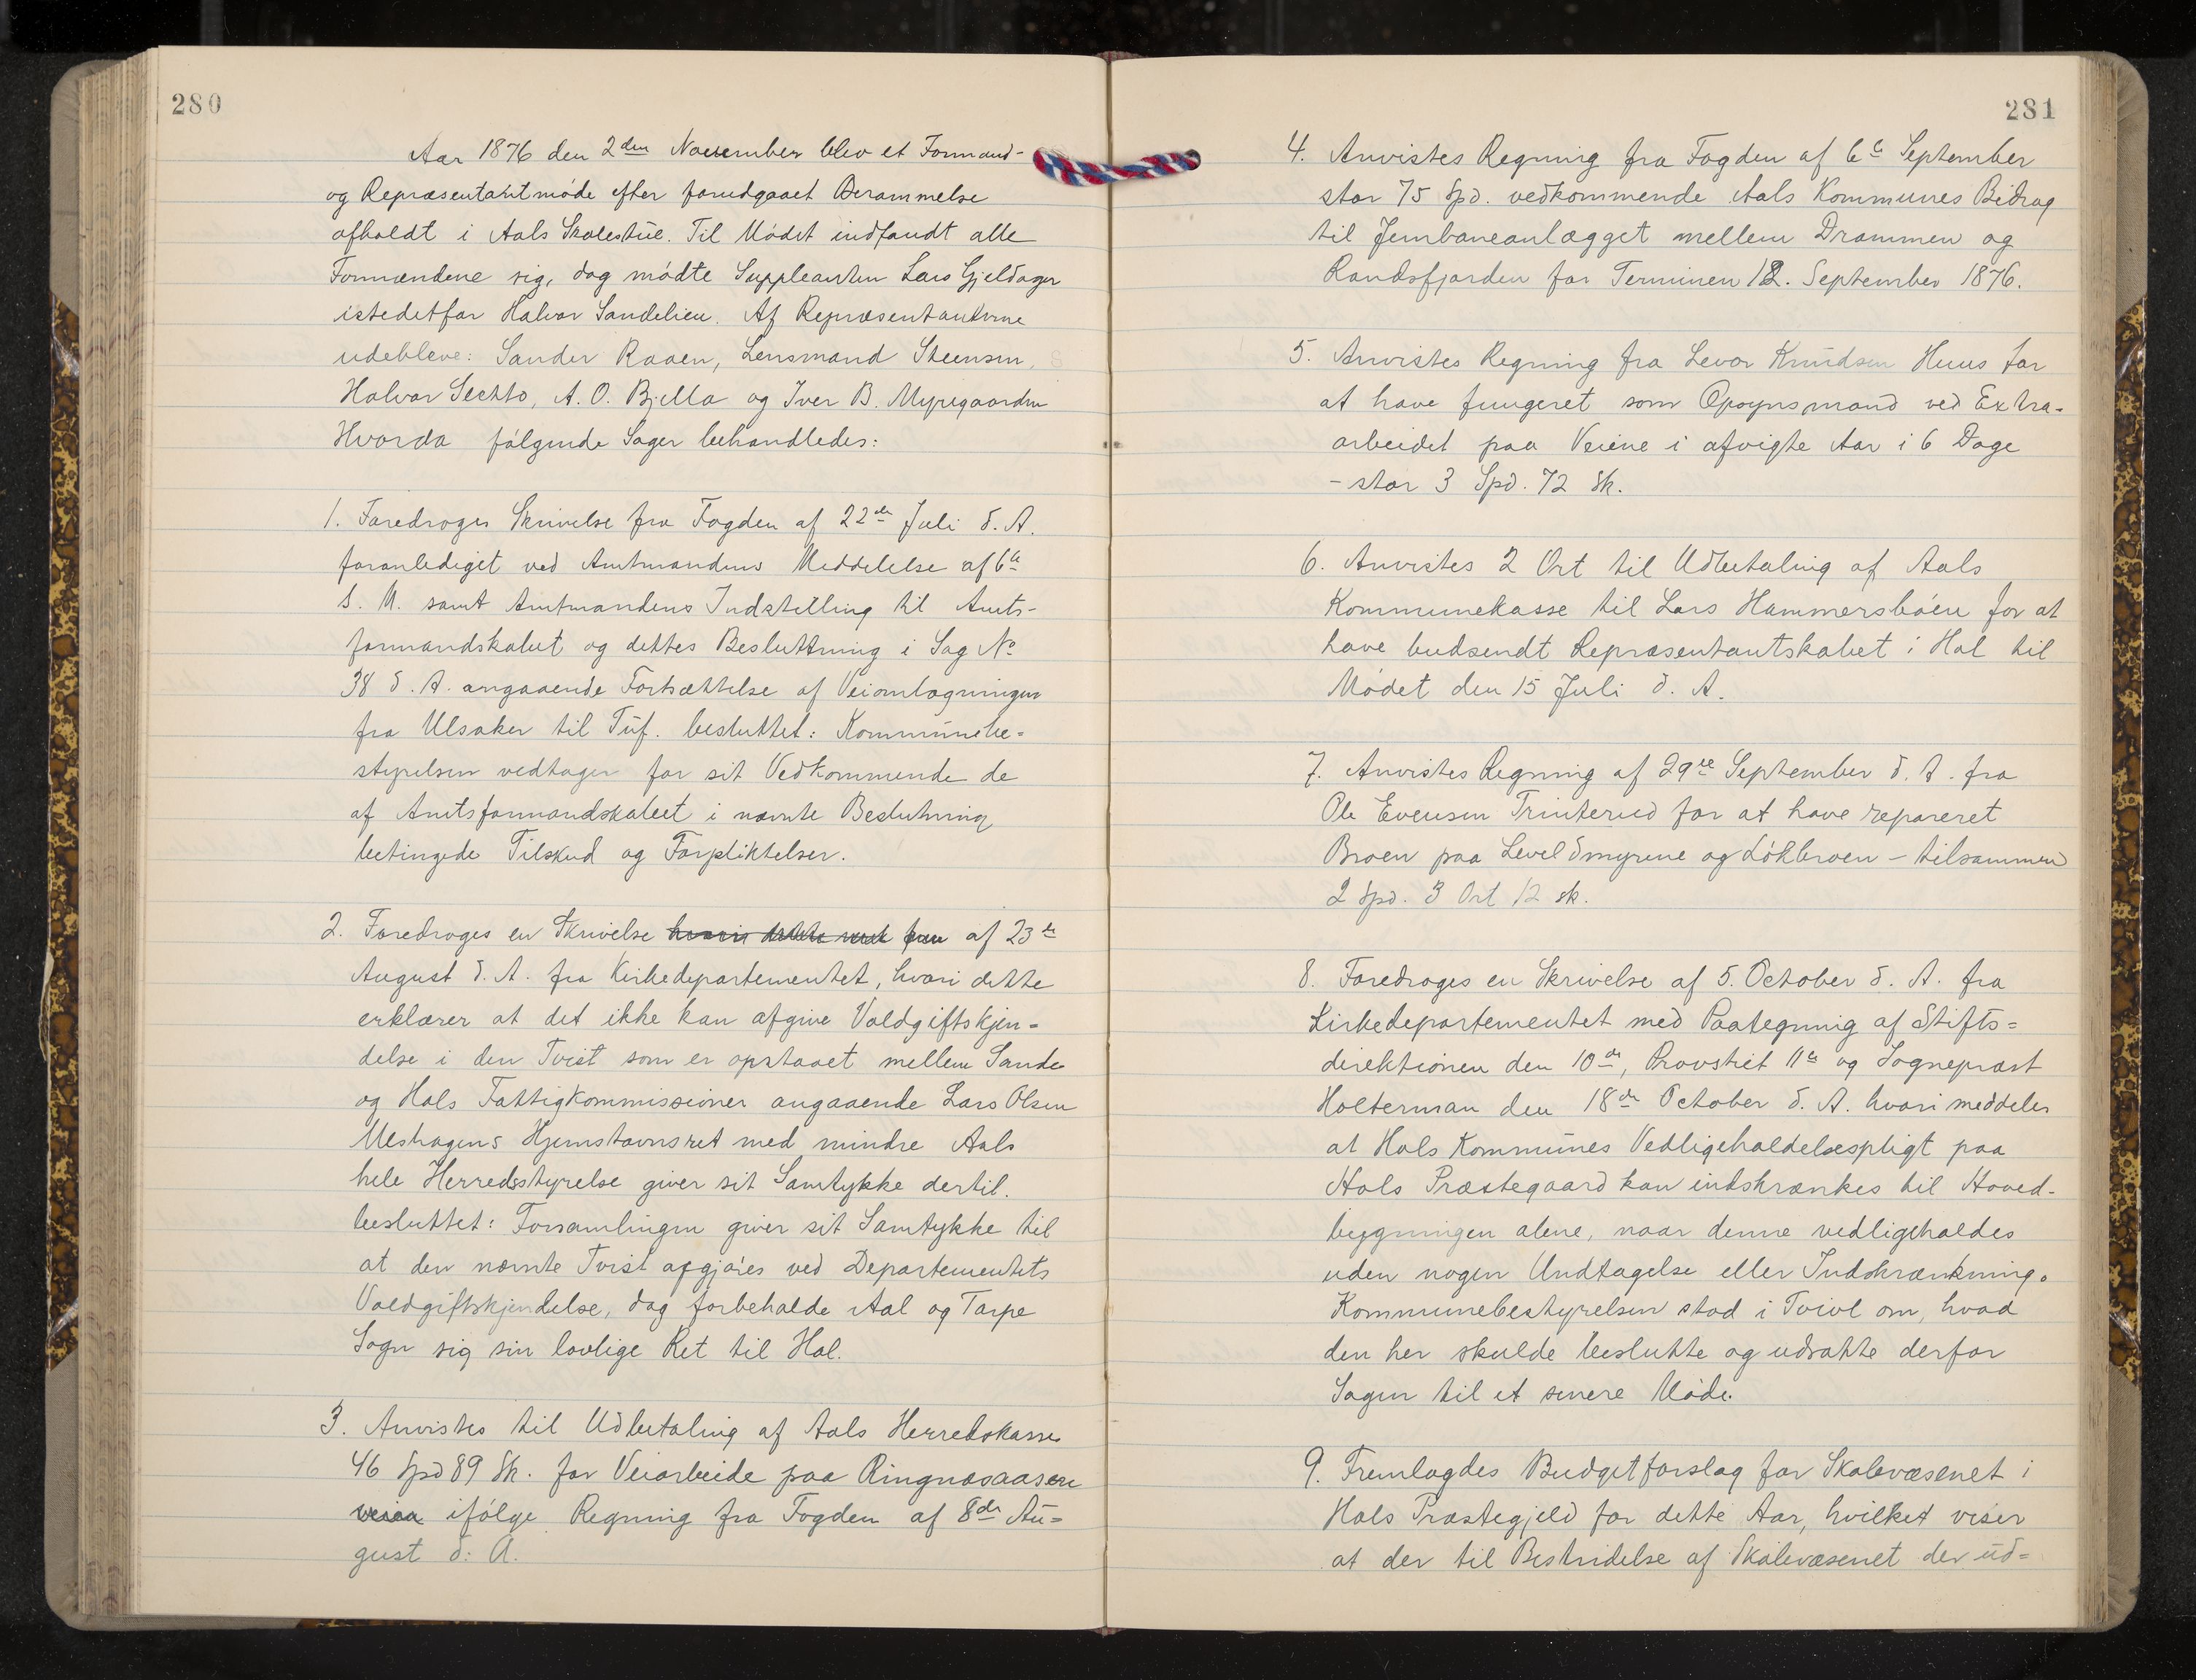 280
Aar 1876 den 2den November blev et Formand-
og Repræsentantmøde efter forudgaaet Berammelse
afholdt i Aals Skolestue. Til Mødet indfandt alle
Formændene sig, dog mødte Suppleanten Lars Gjeldager
istedetfor Halvor Sandelien. Af Repræsentanterne
udebleve: Sander Raaen, Lensmand Steensen,
Halvor Sechto, A. O. Bjella og Iver B. Myregaarden
Hvorda følgende Sager behandledes:
1. Foredroges Skrivelse fra Fogden af 22de Juli d. A.
foranlediget ved Amtmandens Meddelelse af 6te
s. M. samt Amtmandens Indstilling til Amts-
formandskabet og dettes Besluttning i Sag No
38 d. A. angaaende Fortsættelse af Veiomlægningen
fra Ulsaker til Tuf. besluttet: Kommunebe-
styrelsen vedtager for sit Vedkommende de
af Amtsformandskabet i nævnte Beslutning
betingede Tilskud og Forpliktelser.
2. Foredroges en Skrivelse af 23de
August d. A. fra Kirkedepartementet, hvori dette
erklærer at det ikke kan afgive Voldgiftskjen-
delse i den Tvist som er opstaaet mellem Sande
og Hols Fattigkommissioner angaaende Lars Olsen
Ulshagens Hjemstavnsret med mindre Aals
hele Herredsstyrelse giver sit Samtykke dertil.
besluttet: Forsamlingen giver sit Samtykke til
at den nævnte Tvist afgjøres ved Departementets
Voldgiftskjendelse, dog forbeholde Aal og Torpe
Sogn sig sin lovlige Ret til Hol.
3. Anvistes til Udbetaling af Aals Herredskasse
46 Spd 89 Sk. for Veiarbeide paa Ringnæsaasen
veien ifølge Regning fra Fogden af 8de Au-
gust d: A.
281
4. Anvistes Regning fra Fogden af 6te September
stor 75 Spd. vedkommende Aals Kommunes Bidrag
til Jernbaneanlægget mellem Drammen og
Randsfjorden for Terminen 12. September 1876.
5. Anvistes Regning fra Levor Knudsen Huus for
at have fungeret som Opsynsmand ved Extra-
arbeidet paa Veiene i afvigte Aar i 6 Dage
- stor 3 Spd. 72 Sk.
6. Anvistes 2 Ort til Udbetaling af Aals
Kommunekasse til Lars Hammersbøen for at
have budsendt Repræsentantskabet i Hol til
Mødet den 15 Juli d. A.
7. Anvistes Regning af 29de September d. A. fra
Ole Evensen Trinterud for at have repareret
Broen paa Leveldmyrene og Løkbroen - tilsammen
2 Spd. 3 Ort 12 sk.
8. Foredroges en Skrivelse af 5. October d. A. fra
Kirkedepartementet med Paategning af Stifts-
direktionen den 10de, Provstiet 11te og Sognepræst
Holterman den 18de October d. A. hvori meddeles
at Hols Kommunes Vedligeholdelsespligt paa
Hols Præstegaard kan indskrænkes til Hoved-
bygningen alene, naar denne vedligeholdes
uden nogen Undtagelse eller Indskrænkning.
Kommunebestyrelsen stod i Tvivl om, hvad
den her skulde beslutte og udsatte derfor
Sagen til et senere Møde.
9. Fremlagdes Budgetforslag for Skolevæsenet i
Hols Præstegjeld for dette Aar, hvilket viser
at der til Bestridelse af Skolevæsenet der ud-